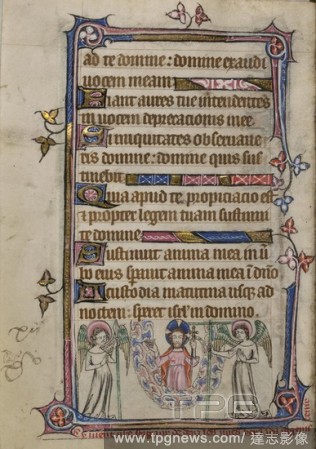 ad te domine : domine exaudi
uocem meam
Fiant aures tue intendentes
in uocem deprecacionis mee.
Si iniquitates obseruaue
ris domine : domine quis sus
tinebit
Quia apud te propiciacio est
& propter legem tuam sustinui
te domine
Sustinuit anima mea in ū
bo eius sperauit anima mea ī dño
A custodia matutina usq; ad
noctem : speret isrl' in domino.
TPG
www.tpgnews.com / 達志影像